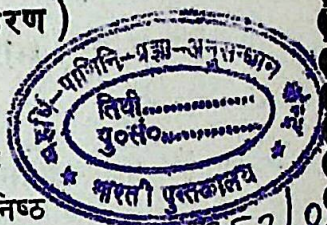 रण )
महर्षि-पाणिनि-प्रज्ञा-अनुसन्धान
तिथी............
पु०सं०............
भारती पुस्तकालय
निष्ठ